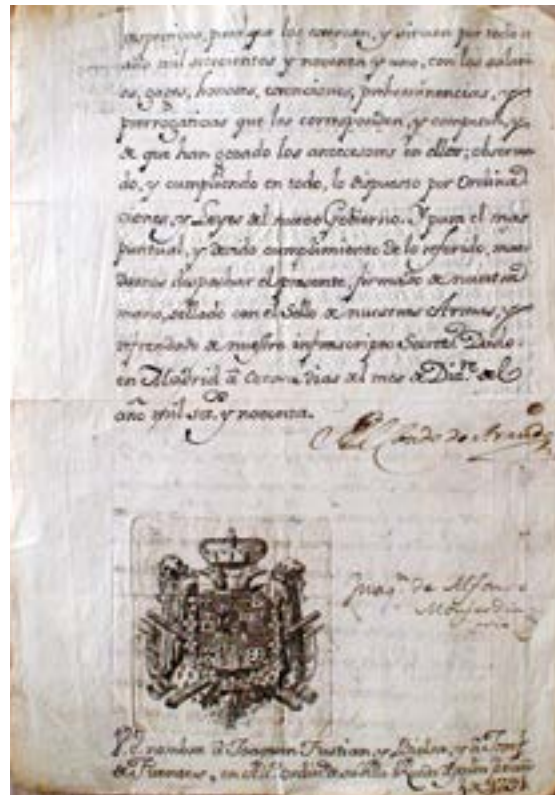 para que los exerzan, y sirvan por todo el
año mil setecientos y noventa y uno, con los salari-
os, gages, honores, exenciones, preheminencias, y
prerrogativas que les corresponden, y competen, y
de que han gozado los antecesores en ellos; observan-
do, y cumpliendo en todo, lo dispuesto por Ordina
ciones, y Leyes del nuevo Gobierno. Y para el mas
puntual, y devido cumplimiento de lo referido, man-
damos despachar el presente, firmado de nuestra
mano, sellado con el Sello de nuestras Armas, y
refrendado de nuestro infrascripto Secret.º Dado
en Madrid a Catorce dias del mes de Diz.re del
año mil set.s y noventa.
El Conde de Aranda
Joaq.n de
V.E. nombra à Joaquin Fustian, y Dielsa, y à
de en